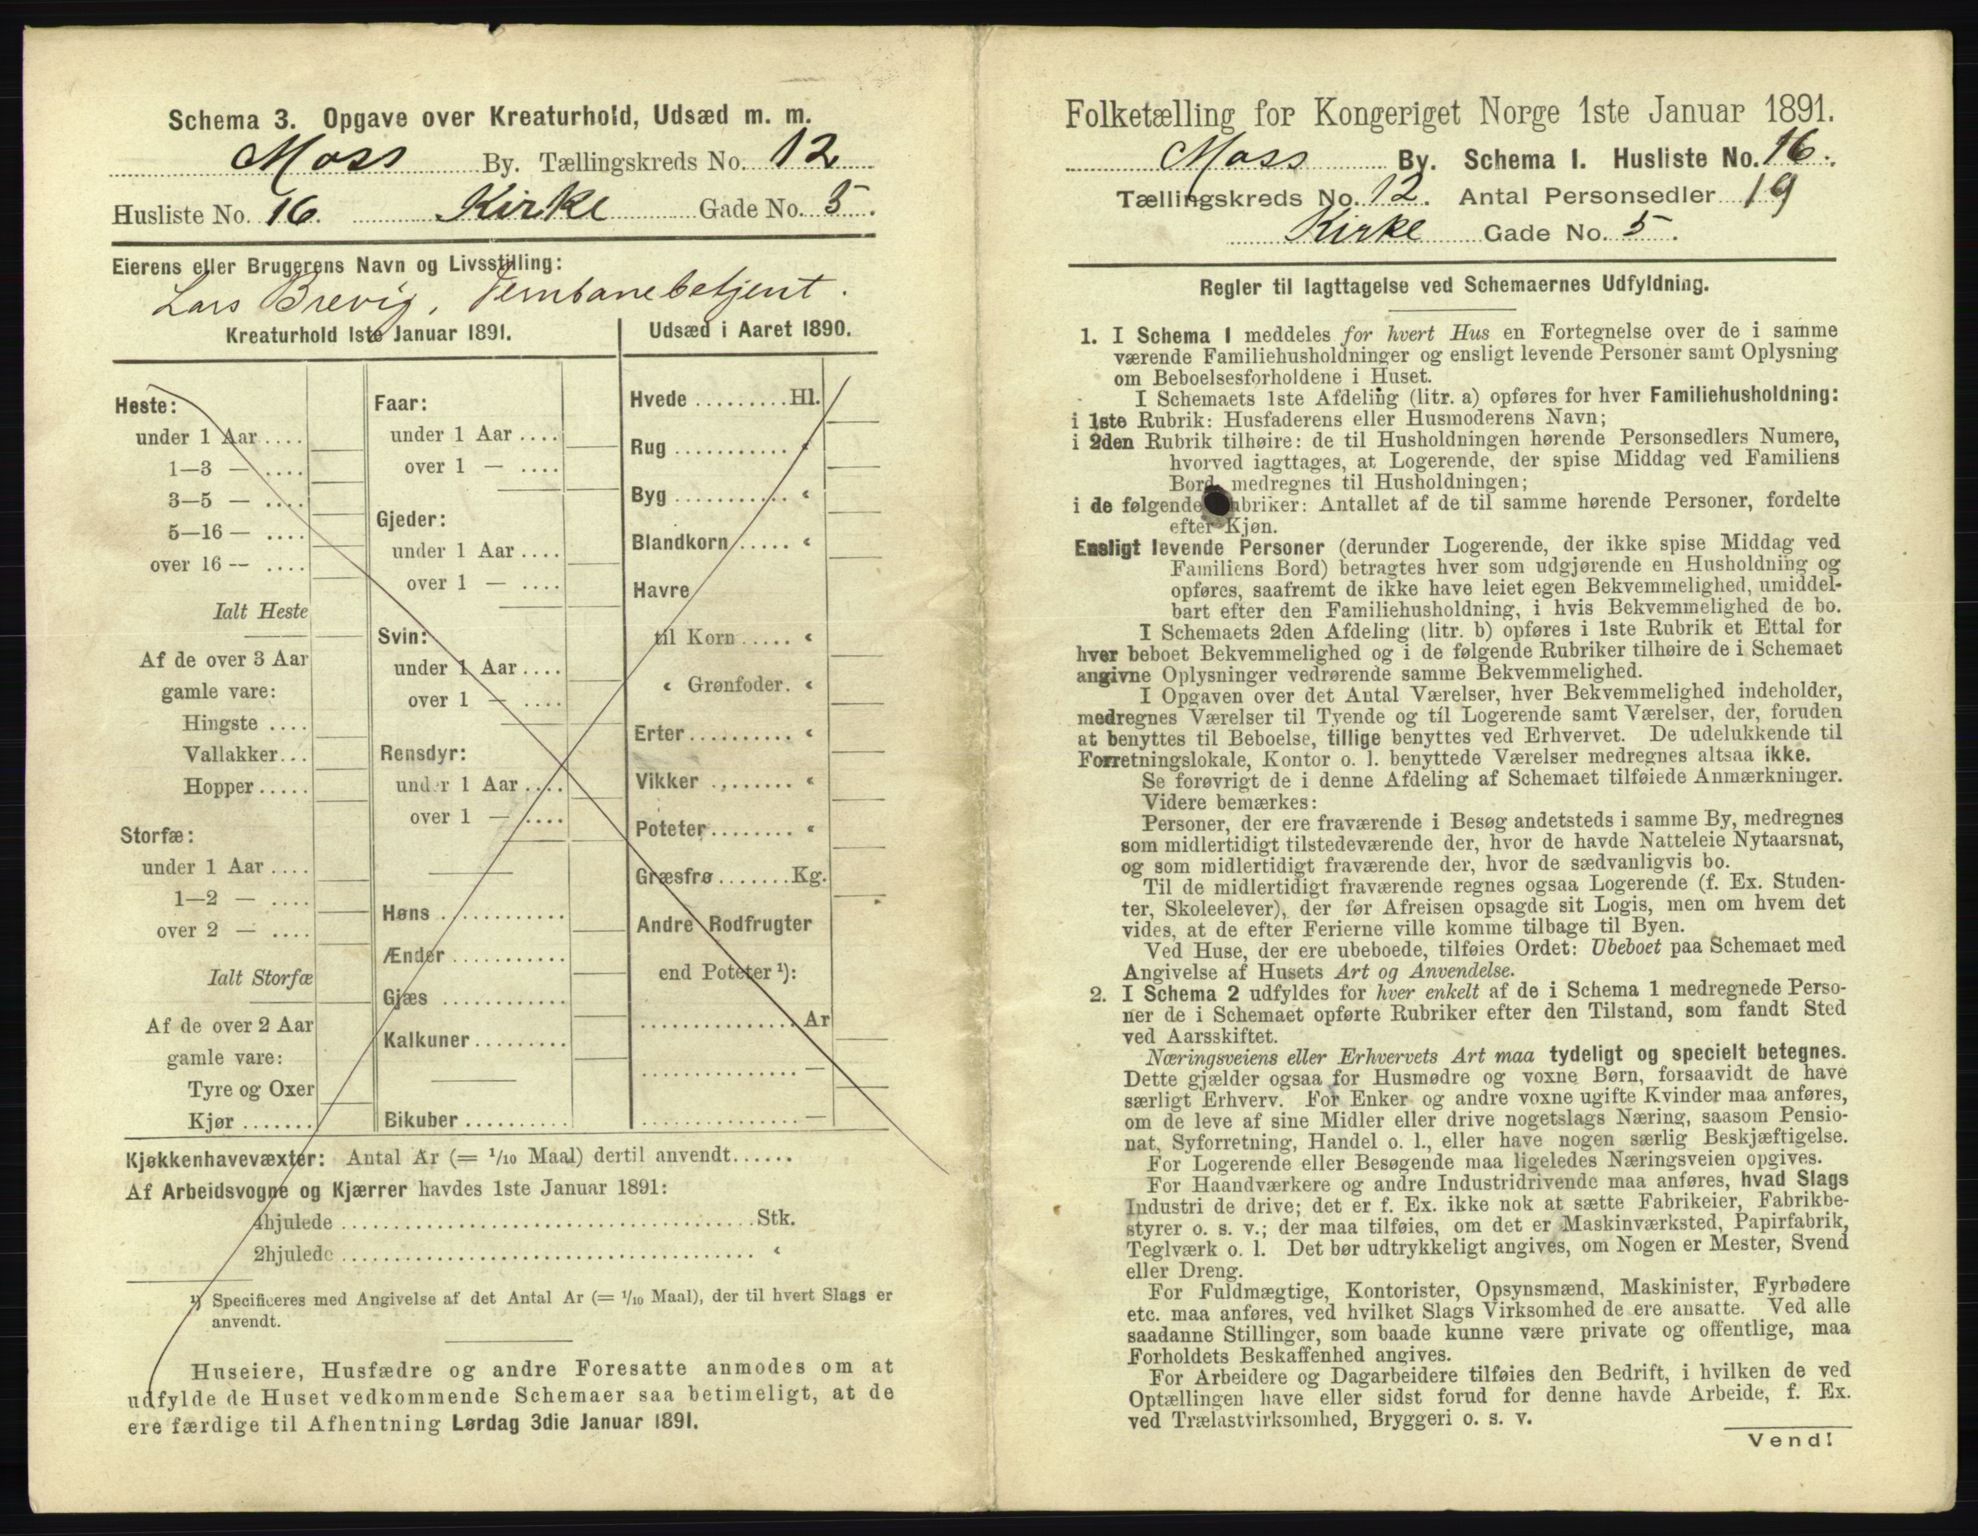 Schema 3. Opgave over Kreaturhold, Udsæd m. m.
Moss By. Tællingskreds No. 12
Husliste No. 16. Kirke Gade No. 5.
Eierens eller Brugerens Navn og Livsstilling:
Lars Brevig, Jernbanebetjent.
Kreaturhold 1ste Januar 1891.
Heste:
under 1 Aar ....
1—3 — ....
3—5 — ....
5—16 — ....
over 16 — ....
Ialt Heste
Af de over 3 Aar
gamle vare:
Hingste ....
Vallakker...
Hopper .....
Storfæ:
under 1 Aar ....
1—2 — ....
over 2 — ....
Ialt Storfæ
Af de over 2 Aar
gamle vare:
Tyre og Oxer
Kjør .......
Faar:
under 1 Aar ....
over 1 — ....
Gjeder:
under 1 Aar ....
over 1 — ....
Svin:
under 1 Aar ....
over 1 — ....
Rensdyr:
under 1 Aar ....
over 1 — ....
Høns ...........
Ænder ...........
Gjæs ............
Kalkuner .........
Bikuber ..........
Udsæd i Aaret 1890.
Hvede .........Hl.
Rug ........... “
Byg ........... “
Blandkorn ..... “
Havre
til Korn ..... “
“ Grønfoder. “
Erter.......... “
Vikker ........ “
Poteter........ “
Græsfrø .......Kg.
Andre Rodfrugter
end Poteter ¹):
...............Ar
............... —
............... —
Kjøkkenhavevæxter: Antal Ar (= 1/10 Maal) dertil anvendt......
Af Arbeidsvogne og Kjærrer havdes 1ste Januar 1891:
4hjulede ........................................Stk.
2hjulede ........................................ “
¹) Specificeres med Angivelse af det Antal Ar (= 1/10 Maal), der til hvert Slags er
anvendt.
Huseiere, Husfædre og andre Foresatte anmodes om at
udfylde de Huset vedkommende Schemaer saa betimeligt, at de
ere færdige til Afhentning Lørdag 3die Januar 1891.
Folketælling for Kongeriget Norge 1ste Januar 1891.
Moss By. Schema 1. Husliste No. 16.
Tællingskreds No. 12. Antal Personsedler 19
Kirke Gade No. 5.
Regler til Iagttagelse ved Schemaernes Udfyldning.
1. I Schema 1 meddeles for hvert Hus en Fortegnelse over de i samme
værende Familiehusholdninger og ensligt levende Personer samt Oplysning
om Beboelsesforholdene i Huset.
I Schemaets 1ste Afdeling (litr. a) opføres for hver Familiehusholdning:
i 1ste Rubrik: Husfaderens eller Husmoderens Navn;
i 2den Rubrik tilhøire: de til Husholdningen hørende Personsedlers Numere,
hvorved iagttages, at Logerende, der spise Middag ved Familiens
Bord, medregnes til Husholdningen;
i de følgende Rubriker: Antallet af de til samme hørende Personer, fordelte
efter Kjøn.
Ensligt levende Personer (derunder Logerende, der ikke spise Middag ved
Familiens Bord) betragtes hver som udgjørende en Husholdning og
opføres, saafremt de ikke have leiet egen Bekvemmelighed, umiddel-
bart efter den Familiehusholdning, i hvis Bekvemmelighed de bo.
I Schemaets 2den Afdeling (litr. b) opføres i 1ste Rubrik et Ettal for
hver beboet Bekvemmelighed og i de følgende Rubriker tilhøire de i Schemaet
angivne Oplysninger vedrørende samme Bekvemmelighed.
I Opgaven over det Antal Værelser, hver Bekvemmelighed indeholder,
medregnes Værelser til Tyende og til Logerende samt Værelser, der, foruden
at benyttes til Beboelse, tillige benyttes ved Erhvervet. De udelukkende til
Forretningslokale, Kontor o. l. benyttede Værelser medregnes altsaa ikke.
Se forøvrigt de i denne Afdeling af Schemaet tilføiede Anmærkninger.
Videre bemærkes:
Personer, der ere fraværende i Besøg andetsteds i samme By, medregnes
som midlertidigt tilstedeværende der, hvor de havde Natteleie Nytaarsnat,
og som midlertidigt fraværende der, hvor de sædvanligvis bo.
Til de midlertidigt fraværende regnes ogsaa Logerende (f. Ex. Studen-
ter, Skoleelever), der før Afreisen opsagde sit Logis, men om hvem det
vides, at de efter Ferierne ville komme tilbage til Byen.
Ved Huse, der ere ubeboede, tilføies Ordet: Ubeboet paa Schemaet med
Angivelse af Husets Art og Anvendelse.
2. I Schema 2 udfyldes for hver enkelt af de i Schema 1 medregnede Perso-
ner de i Schemaet opførte Rubriker efter den Tilstand, som fandt Sted
ved Aarsskiftet.
Næringsveiens eller Erhvervets Art maa tydeligt og specielt betegnes.
Dette gjælder ogsaa for Husmødre og voxne Børn, forsaavidt de have
særligt Erhverv. For Enker og andre voxne ugifte Kvinder maa anføres,
om de leve af sine Midler eller drive nogetslags Næring, saasom Pensio-
nat, Syforretning, Handel o. l., eller have nogen særlig Beskjæftigelse.
For Logerende eller Besøgende maa ligeledes Næringsveien opgives.
For Haandværkere og andre Industridrivende maa anføres, hvad Slags
Industri de drive; det er f. Ex. ikke nok at sætte Fabrikeier, Fabrikbe-
styrer o. s. v.; der maa tilføies, om det er Maskinværksted, Papirfabrik,
Teglværk o. l. Det bør udtrykkeligt angives, om Nogen er Mester, Svend
eller Dreng.
For Fuldmægtige, Kontorister, Opsynsmænd, Maskinister, Fyrbødere
etc. maa anføres, ved hvilket Slags Virksomhed de ere ansatte. Ved alle
saadanne Stillinger, som baade kunne være private og offentlige, maa
Forholdets Beskaffenhed angives.
For Arbeidere og Dagarbeidere tilføies den Bedrift, i hvilken de ved
Optællingen have eller sidst forud for denne havde Arbeide, f. Ex.
ved Trælastvirksomhed, Bryggeri o. s. v.
Vend!